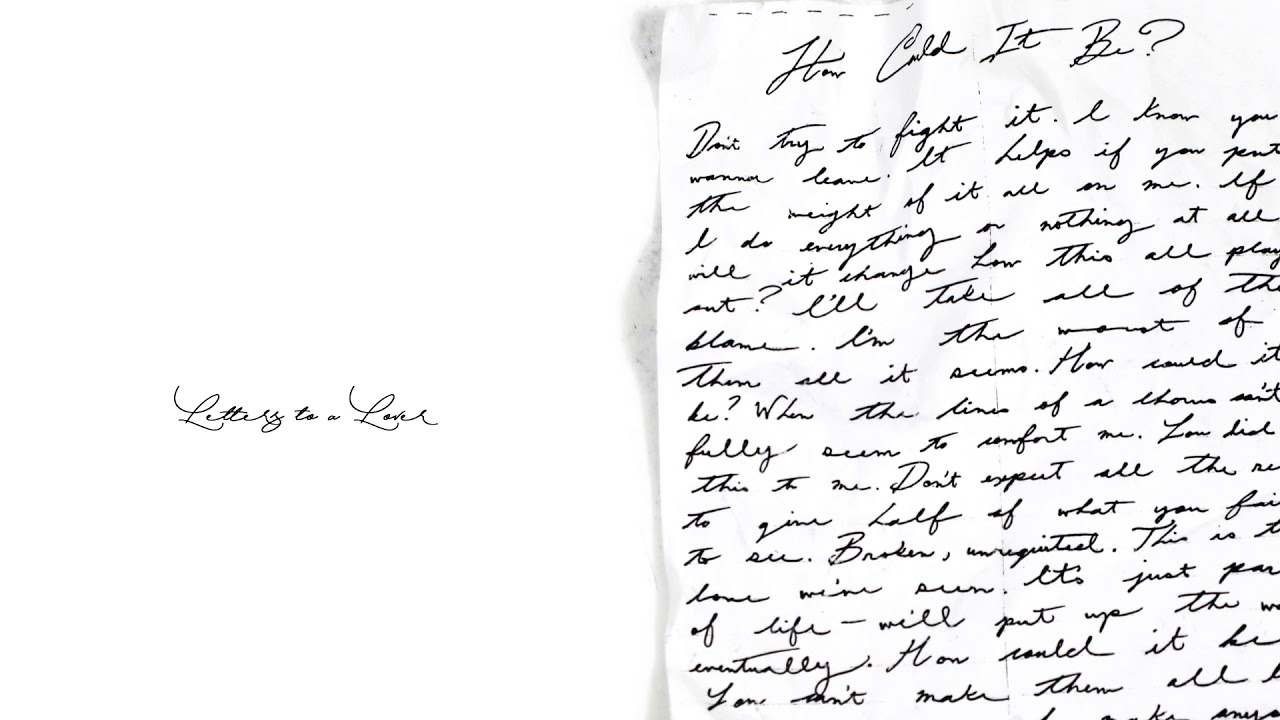 How Could It Be?
Don't try to fight it. I know you
wanna leave. It helps if you put
the weight of it all on me. If
I do everything or nothing at all
will it change how this all play
out? I'll take all of the
blame. I'm the worst of
them all it seems. How could it
be? When the lines of a chorus can't
fully seem to comfort me. You did
this to me. Don't expect all the re
to give half of what you fai
to see. Broken, unrequited. This is t
love we've seen. It's just par
of life – will put up the w
eventually. How could it be
You can't make them all
make anyo
Letters to a Lover